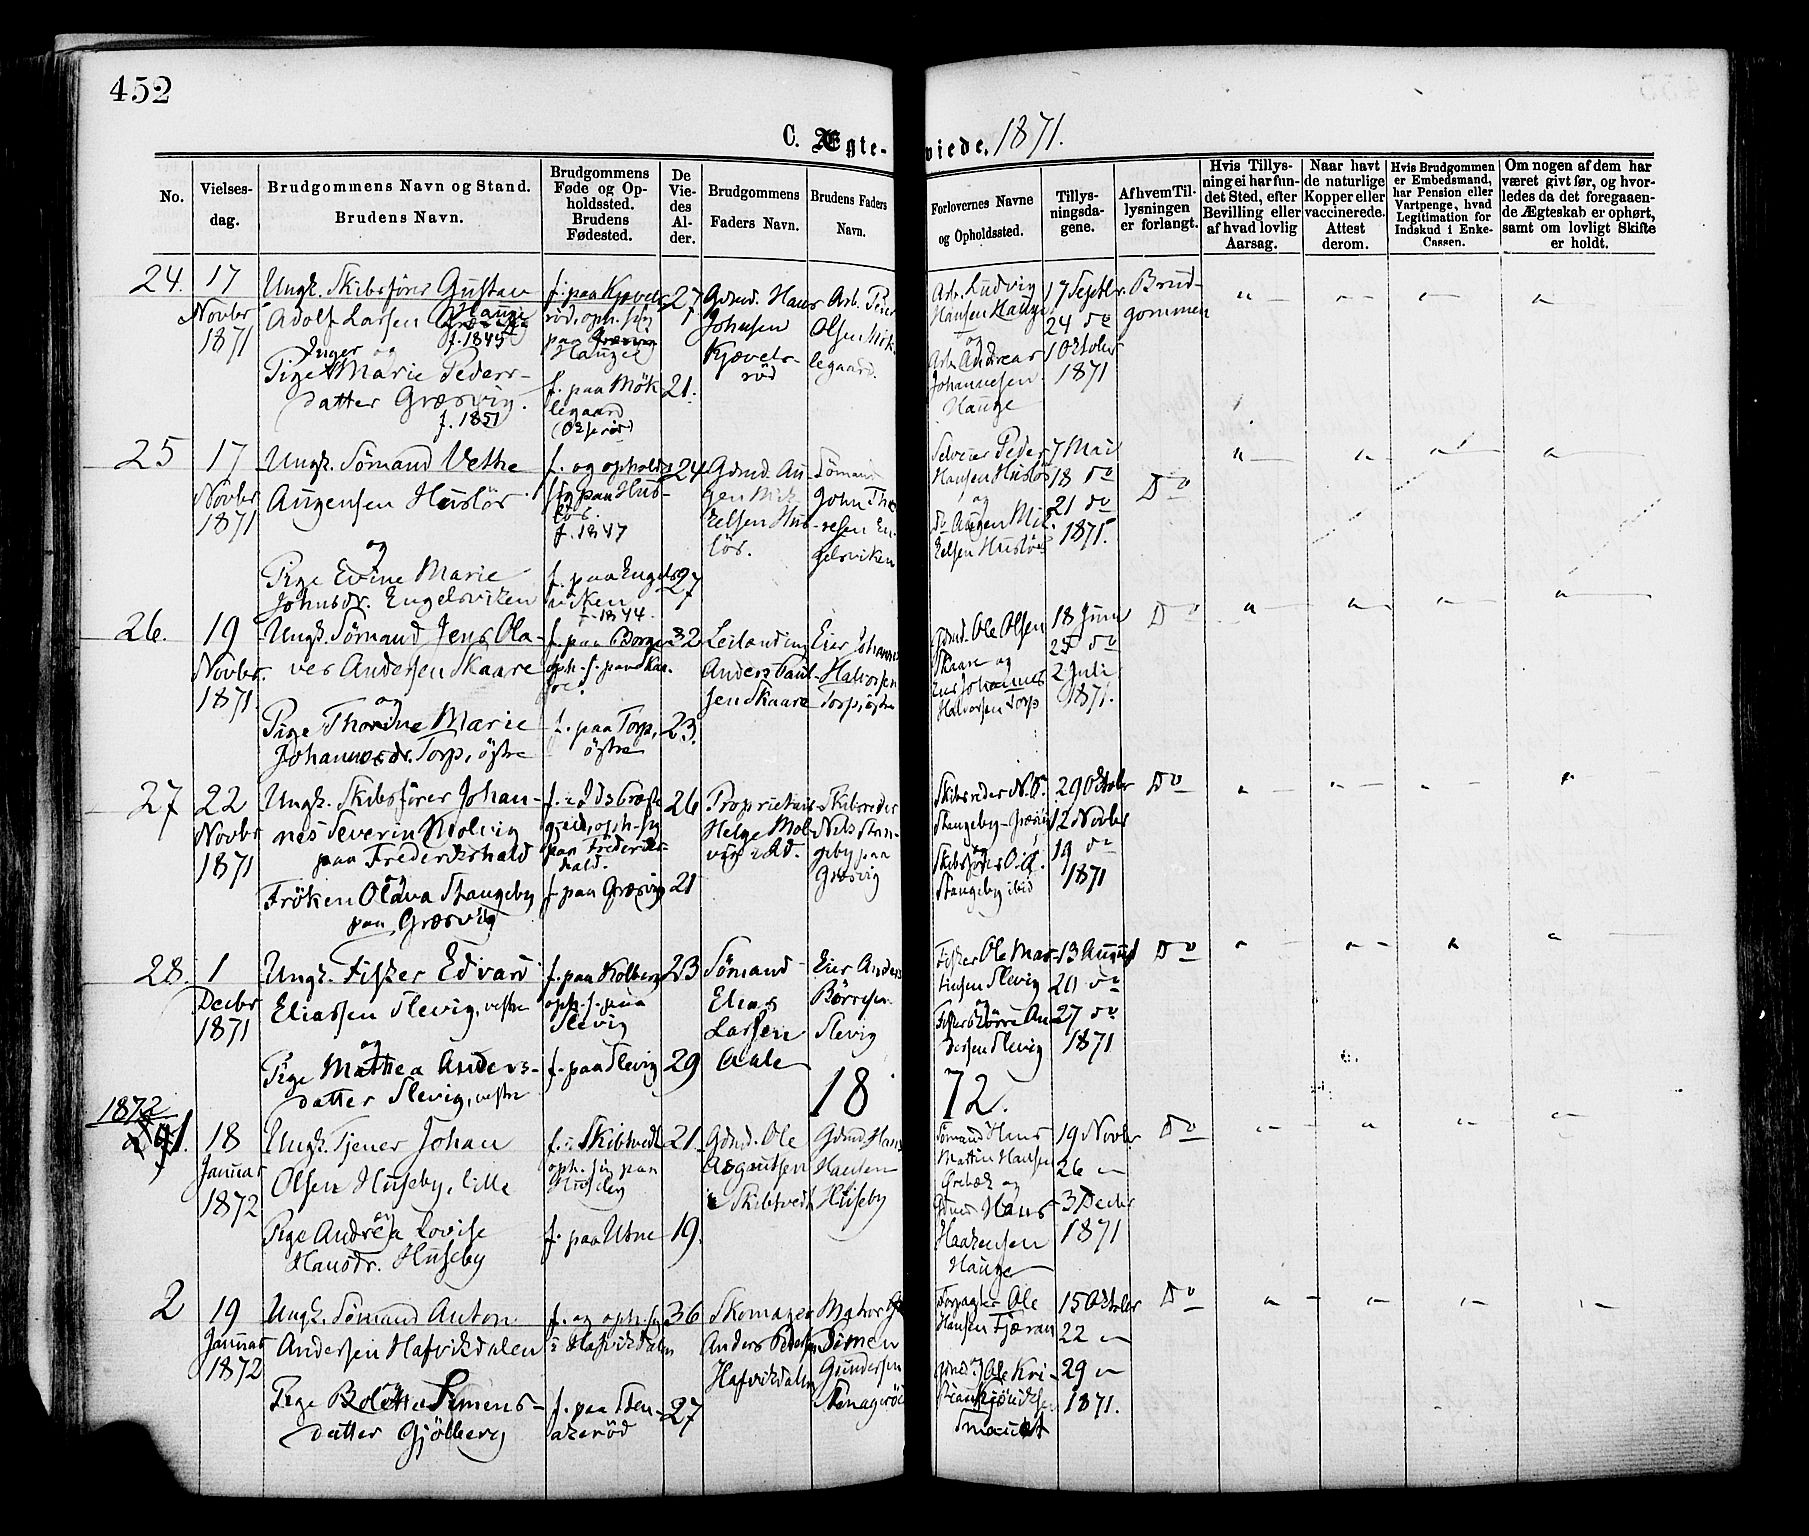 452
C. Ægte-
viede. 1871.
No.
Vielses-
dag.
Brudgommens Navn og Stand.
Brudens Navn.
Brudgommens
Føde og Op-
holdssted.
Brudens
Fødested.
De
Vie-
des
Al-
der.
Brudgommens
Faders Navn.
Brudens Faders
Navn.
Forlovernes Navne
og Opholdssted.
Tillys-
ningsda-
gene.
Af hvem Til-
lysningen
er forlangt.
Hvis Tillys-
ning ei har fun-
det Sted, efter
Bevilling eller
af hvad lovlig
Aarsag.
Naar havt
de naturlige
Kopper eller
vaccinerede.
Attest
derom.
Hvis Brudgommen
er Embedsmand,
har Pension eller
Vartpenge, hvad
Legitimation for
Indskud i Enke-
Cassen.
Om nogen af dem har
været givt før, og hvor-
ledes da det foregaaen-
de Ægteskab er ophørt,
samt om lovligt Skifte
er holdt.
24.
17
Novbr
1871
Ungk. Skibsfører Gustav
Adolf Larsen Hauge
f. 1845
og
Pige Inger Marie Peders-
datter Græsvig.
f. 1851
f. paa Kjøvels-
rød, oph. sig
paa
Hauge
f. paa Mök-
legaard
(Onsø)
27
21.
Gdmd. Hans
Johnsen
Kjøvels-
röd
Arb. Peder
Olsen Mök-
legaard.
Arb. Ludvig
Hansen Hauge
og
Arb. Andreas
Johannesen
Hauge
17 Septbr.
24 do
1 Octobr
1871
Brud-
gommen
25
17
Novbr
1871
Ungk. Sömand Vethe
Augensen Huslös.
og
Pige Evine Marie
Johnsdr. Engelsviken
f. og opholder
sig paa Hus-
lös.
f. 1847
f. paa Engels-
viken
f. 1844.
24
27
Gdmd. Au-
gen Mik-
kelsen Hus-
lös.
Sömand
John Tho-
resen En-
gelsviken
Selveier Peder
Hansen Huslös
og
do Augen Mik-
kelsen Huslös
7 Mai
18 do
21 do
1871.
Do
26.
19
Novbr.
1871.
Ungk. Sömand Jens Ola-
ves Andersen Skaare
og
Pige Thorine Marie
Johannesdr. Torp, östre
f. paa Borge
oph. s. paa Skaa-
re.
f. paa Torp,
östre
32
23.
Leilænding
Anders Paul-
sen Skaare
Eier Johannes
Halvorsen
Torp, östre
Gdmd. Ole Olsen
Skaare og
Eier Johannes
Halvorsen Torp
18 Juni
25 do
2 Juli
1871.
Do
27
22
Novbr
1871
Ungk. Skibsfører Johan-
nes Severin Molvig
paa Frederikshald
og
Fröken Olava Stangeby
paa Græsvig
f. i Ids Præste-
gjeld, oph. sig
paa Frederiks-
hald.
f. paa Græsvig
26
21
Proprietair
Helge Mol-
vig i Id.
Skibsreder
Nils Stan-
geby paa
Græsvig
Skibsreder N.
Stangeby Græsvig
og
Skibsfører O.
Stangeby ibid
29 Octobr
12 Novbr
19 do
1871
Do
28.
1
Decbr
1871
Ungk. Fisker Edvard
Eliassen Slevig, vestre
og
Pige Mathea Anders-
datter Slevig, vestre
f. paa Kolberg
oph. s. paa
Slevig
f. paa Slevig
23
29
Sömand
Elias
Larsen
Aale
Eier Anders
Börresen
Slevig
Fisker Ole Mar-
tinsen Slevig
og
Fisker Börre An-
dersen Slevig
13 August
20 do
27 do
1871
Do
1872
1872
1.
18
Januar
1872
Ungk. Tjener Johan
Olsen Huseby, lille
og
Pige Andrea Lovise
Hansdr. Huseby
f. i Skibtvedt
oph. sig paa
Huseby
f. paa Utne
21.
19.
Gdmd. Ole
Asgautsen
i Skibtvedt
Gdmd. Hans
Hansen
Huseby
Sömand Hans
Martin Hansen
Örebæk og
Gdmd Hans
Haakensen
Hauge
19 Novbr
26 "
3 Decbr
1871
Do
2
19
Januar
1872
Ungk. Sömand Anton
Andersen Hafvikdalen
og
Pige Bolette Simens-
datter Gjölberg
f. og oph. sig
i Hafvikdalen
f. paa Sten-
akeröd
36
27
Skomager
Anders Pedersen
Hafvikdalen
Simen
Gundersen
Forpagter Ole
Hansen Fjæran
og
Gdmd Ole Kri-
15 Octobr
22 "
29 "
1871.
Do